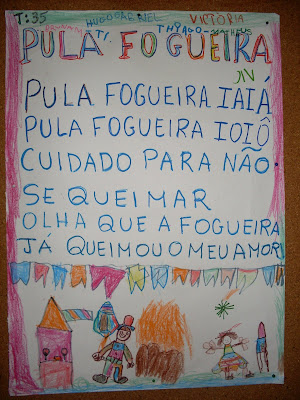 T:35 HUGO GABRIEL VICTORIA
THYAGO MATHEUS
PULA FOGUEIRA
JV
PULA FOGUEIRA IAIÁ
PULA FOGUEIRA IOIÔ
CUIDADO PARA NÃO
SE QUEIMAR
OLHA QUE A FOGUEIRA
JÁ QUEIMOU O MEU AMOR